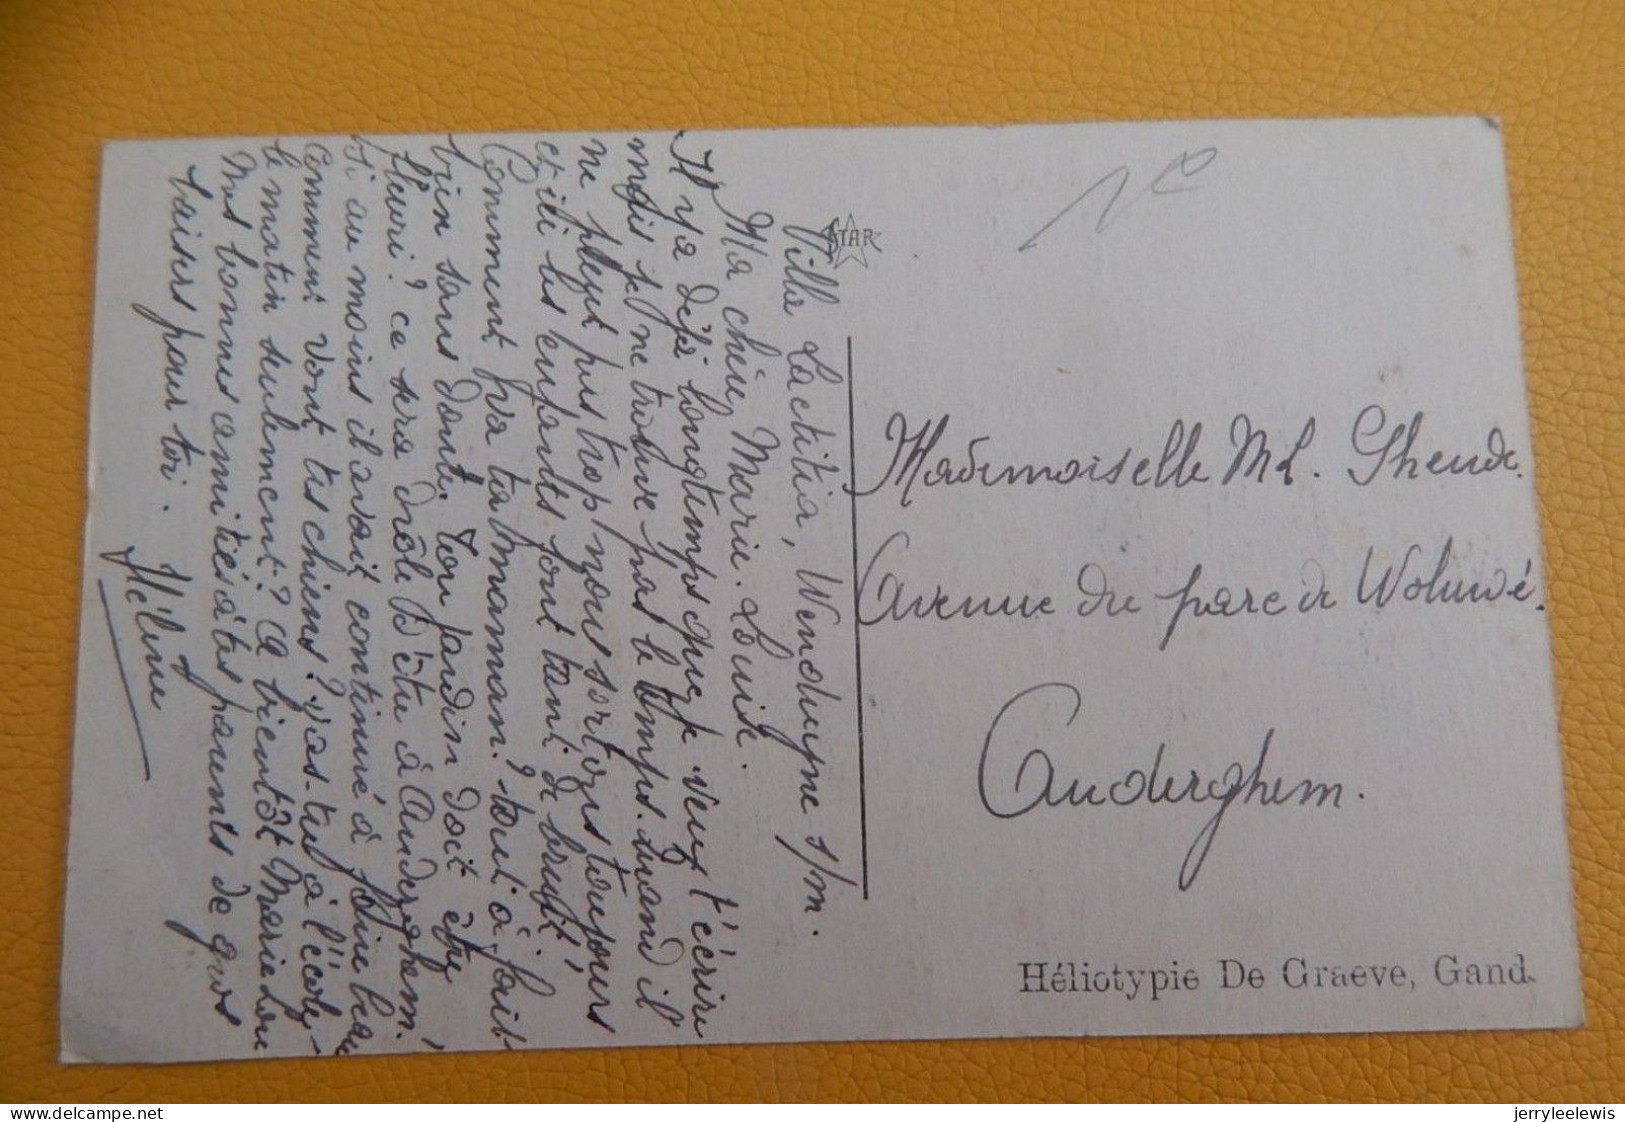 Villa Lactitia, Wenduyne s/m.
Ma chère Marie-Louise.
Il y a déjà longtemps que je veux t'écrire
mais je ne trouve pas le temps. Quand il
ne pleut pas trop nous sortons toujours
et ici les enfants font tant de bruit!
Comment va ta maman? tout à fait
bien sans doute. Ton jardin doit être
fleuri? ce sera drôle d'être à Auderghem!
Si au moins il avait continué à faire beau
Comment vont tes chiens? Vas-tu à l'école
le matin seulement? A bientôt Marie Lou
Mes bonnes amitiés à tes parents de gros
baisers pour toi. Hélène
STAR
Mademoiselle M L. Gheude.
Avenue du parc de Woluwé.
Auderghem.
Héliotypie De Graeve, Gand.
jerryleelewis
www.delcampe.net